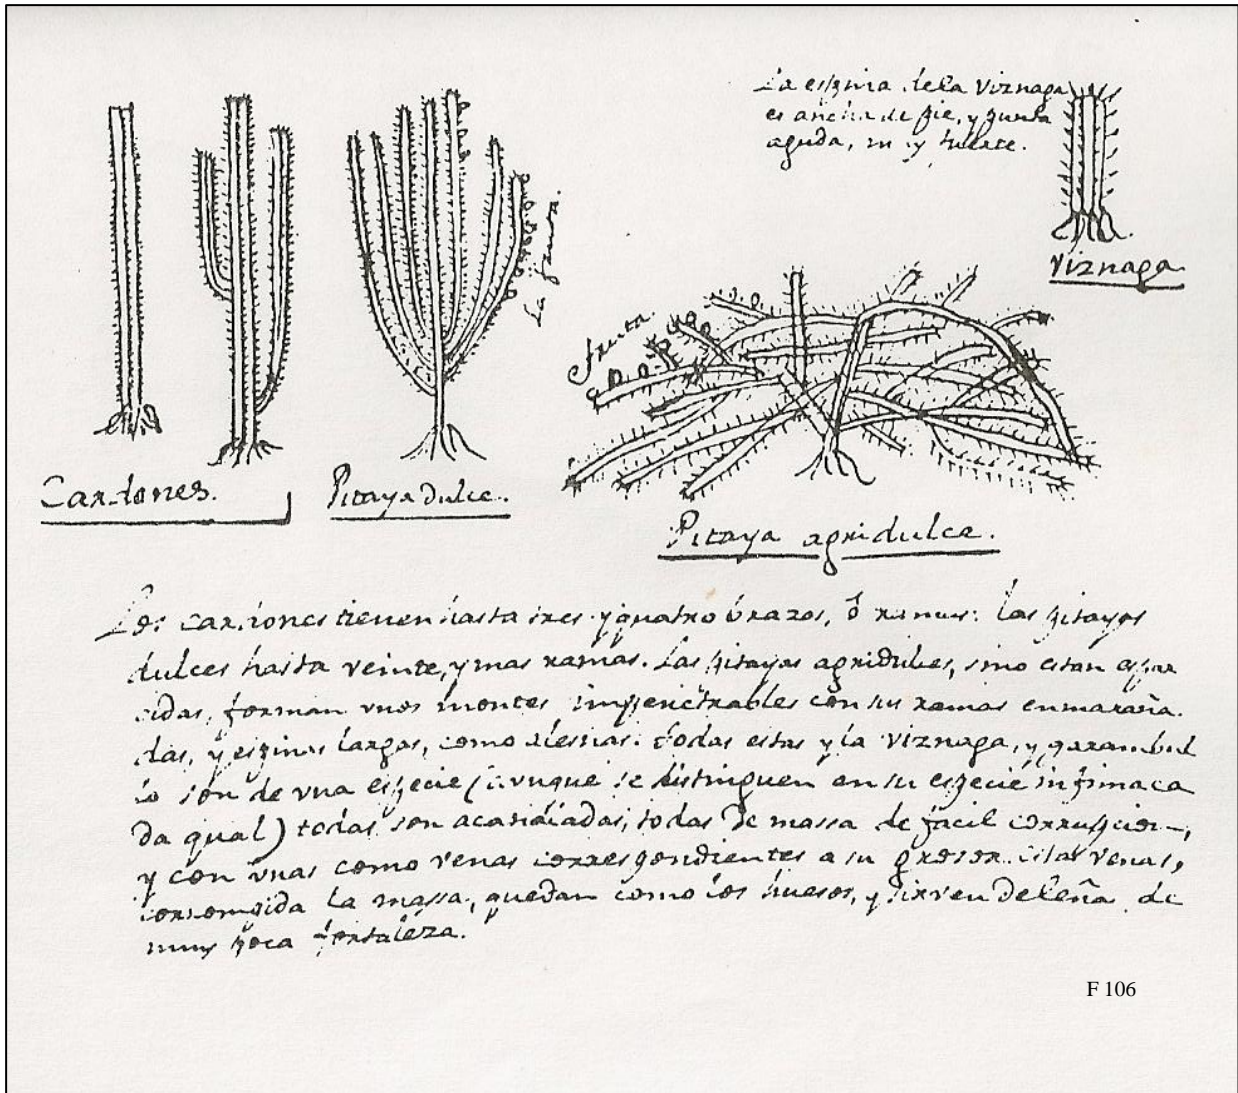 La espina de la Viznaga
es ancha de pie, y punta
aguda, muy fuerte.
Viznaga
La fruta.
fruta
Cardones.
Pitaya Dulce.
Pitaya agridulce.
Los cardones tienen hasta tres y quatro brazos, ô ramas: las pitayas
dulces hasta veinte, y mas ramas. Las pitayas agridulces, sino estan espar
cidas, forman unos montes impenetrables con sus ramas enmaraña.
das, y espinas largas, como alesnas. Todas estas y la viznaga, y garambul
lo son de vna especie (aunque se distinguen en su especie infima ca
da qual) todas son acanaladas, todas de massa de facil corrupcion,
y con vnas como venas correspondientes a su grosor. Estas venas,
corrompida la massa, quedan como los huesos, y sirven de leña de
muy poca fortaleza.
F 106